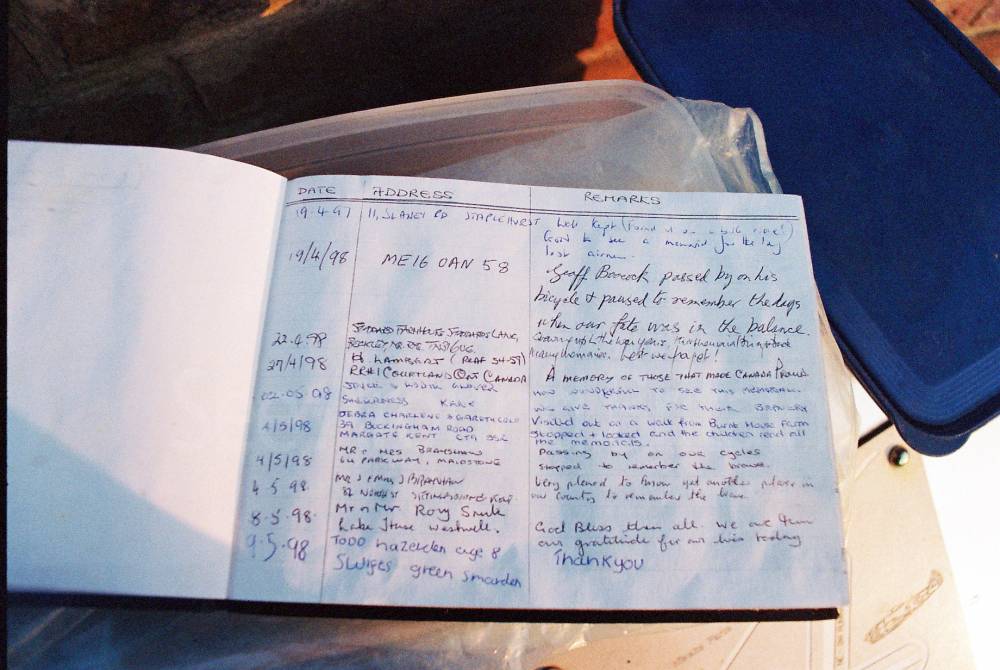 DATE ADDRESS REMARKS
19.4.97 11, SLANEY RD STAPLEHURST Well Kept (found it on a
Good to see a memorial for the
lost airmen.
19/4/98 ME16 0AN 58 Geoff Boocock passed by on his
bicycle & paused to remember the days
when our fate was in the balance.
22.4.98 LANE, Growing up the war years,
many memories. Lest we forget!
27/4/98 H LAMBERT (RCAF 54-57)
RR#1 COURTLAND ONT CANADA A MEMORY OF THOSE THAT MADE CANADA PROUD
02.05.98 JOYCE & GLOVER HOW WONDERFUL TO SEE THIS MEMORIAL.
SHEERNESS KENT WE GIVE THANKS FOR THEIR BRAVERY
4/5/98 DEBRA CHARLENE & GARETH COLE Visited out on a walk from Burnt House Farm
39 BUCKINGHAM ROAD Stopped & looked and the children read all
MARGATE KENT CT9 the memorials.
4/5/98 MR & MRS BRADSHAW Passing by on our cycles
64 PARKWAY, MAIDSTONE stopped to remember the brave.
4.5.98 Mr J & Mrs J Very pleased to know yet another place in
82 SITTINGBOURNE KENT our county to remember the brave
8.5.98. Mr & Mrs Roy Smith God Bless them all. we owe them
Lake House Westwell. our gratitude for our lives today
9.5.98 TODD hazelden age 8 Thankyou
green smarden